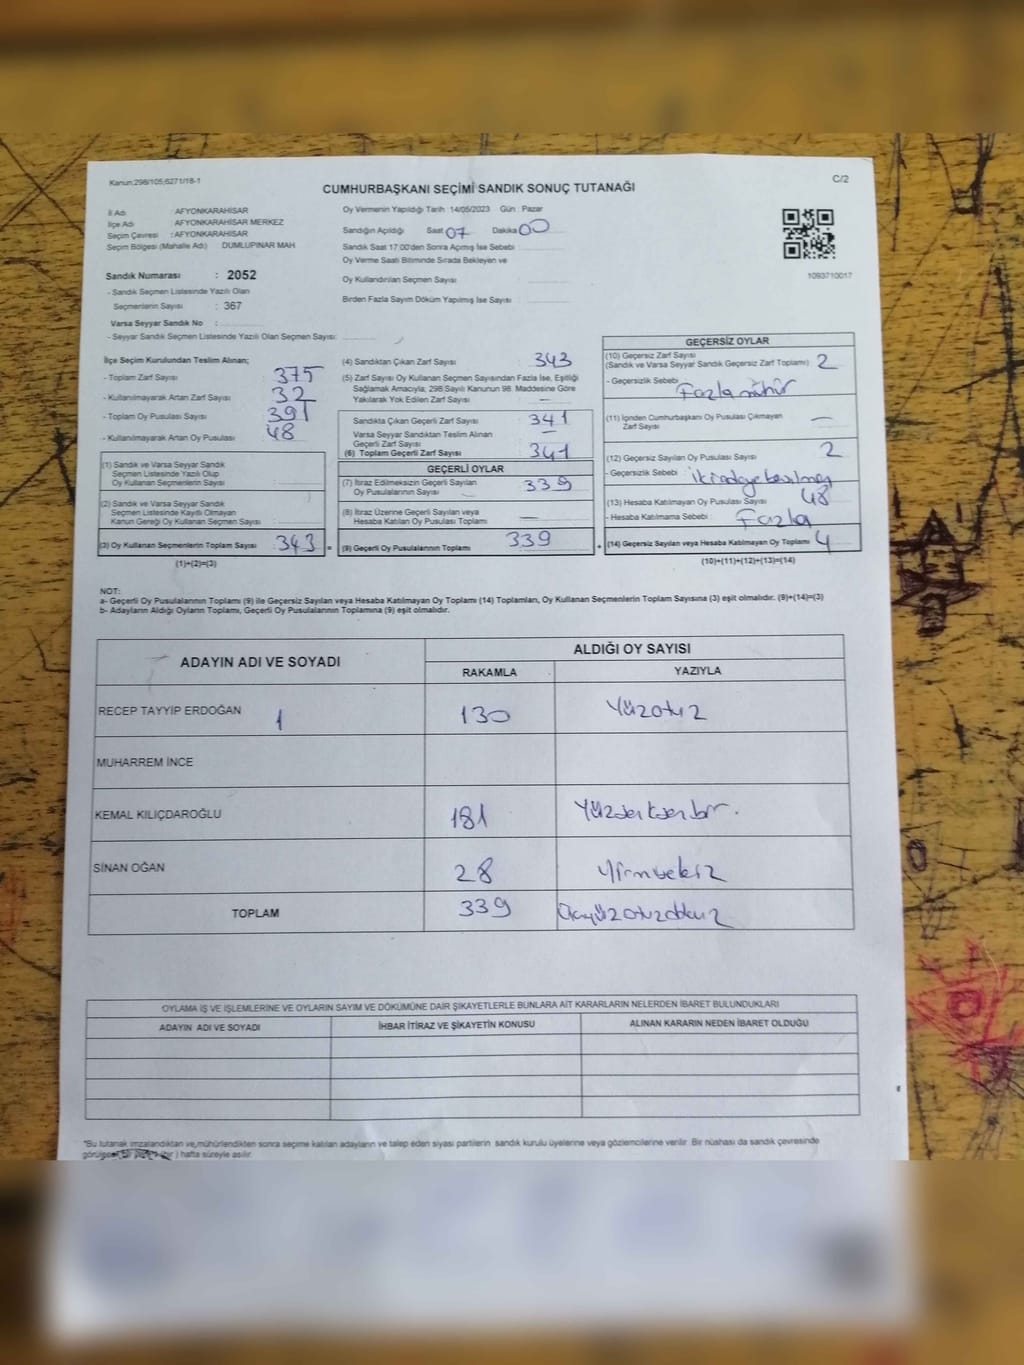 Kanun:298/105;6271/18-1
C/2
CUMHURBAŞKANI SEÇİMİ SANDIK SONUÇ TUTANAĞI
İl Adı : AFYONKARAHİSAR
İlçe Adı : AFYONKARAHİSAR MERKEZ
Seçim Çevresi : AFYONKARAHİSAR
Seçim Bölgesi (Mahalle Adı) DUMLUPINAR MAH
Sandık Numarası : 2052
- Sandık Seçmen Listesinde Yazılı Olan
Seçmenlerin Sayısı : 367
Varsa Seyyar Sandık No :
- Seyyar Sandık Seçmen Listesinde Yazılı Olan Seçmen Sayısı:
Oy Vermenin Yapıldığı Tarih 14/05/2023 Gün : Pazar
Sandığın Açıldığı Saat 07 Dakika 00
Sandık Saat 17:00'den Sonra Açımış İse Sebebi :
Oy Verme Saati Bitiminde Sırada Bekleyen ve
Oy Kullandırılan Seçmen Sayısı :
Birden Fazla Sayım Döküm Yapılmış İse Sayısı :
1093710017
İlçe Seçim Kurulundan Teslim Alınan;
- Toplam Zarf Sayısı : 375
- Kullanılmayarak Artan Zarf Sayısı : 32
- Toplam Oy Pusulası Sayısı : 391
- Kullanılmayarak Artan Oy Pusulası : 48
(1) Sandık ve Varsa Seyyar Sandık
Seçmen Listesinde Yazılı Olup
Oy Kullanan Seçmenlerin Sayısı :
(2) Sandık ve Varsa Seyyar Sandık
Seçmen Listesinde Kayıtlı Olmayan
Kanun Gereği Oy Kullanan Seçmen Sayısı :
(3) Oy Kullanan Seçmenlerin Toplam Sayısı : 343 =
(1)+(2)=(3)
(4) Sandıktan Çıkan Zarf Sayısı : 343
(5) Zarf Sayısı Oy Kullanan Seçmen Sayısından Fazla İse, Eşitliği
Sağlamak Amacıyla, 298 Sayılı Kanunun 98. Maddesine Göre
Yakılarak Yok Edilen Zarf Sayısı : —
Sandıkta Çıkan Geçerli Zarf Sayısı : 341
Varsa Seyyar Sandıktan Teslim Alınan
Geçerli Zarf Sayısı : —
(6) Toplam Geçerli Zarf Sayısı : 341
GEÇERLİ OYLAR
(7) İtiraz Edilmeksizin Geçerli Sayılan
Oy Pusulalarının Sayısı : 339
(8) İtiraz Üzerine Geçerli Sayılan veya
Hesaba Katılan Oy Pusulası Toplamı : —
(9) Geçerli Oy Pusulalarının Toplamı : 339 +
GEÇERSİZ OYLAR
(10) Geçersiz Zarf Sayısı
(Sandık ve Varsa Seyyar Sandık Geçersiz Zarf Toplamı) : 2
- Geçersizlik Sebebi : Fazla mühür
(11) İçinden Cumhurbaşkanı Oy Pusulası Çıkmayan
Zarf Sayısı : —
(12) Geçersiz Sayılan Oy Pusulası Sayısı : 2
- Geçersizlik Sebebi :
(13) Hesaba Katılmayan Oy Pusulası Sayısı : 48
- Hesaba Katılmama Sebebi : Fazla
(14) Geçersiz Sayılan veya Hesaba Katılmayan Oy Toplamı : 4
(10)+(11)+(12)+(13)=(14)
NOT:
a- Geçerli Oy Pusulalarının Toplamı (9) ile Geçersiz Sayılan veya Hesaba Katılmayan Oy Toplamı (14) Toplamları, Oy Kullanan Seçmenlerin Toplam Sayısına (3) eşit olmalıdır. (9)+(14)=(3)
b- Adayların Aldığı Oyların Toplamı, Geçerli Oy Pusulalarının Toplamına (9) eşit olmalıdır.
ADAYIN ADI VE SOYADI
ALDIĞI OY SAYISI
RAKAMLA YAZIYLA
RECEP TAYYİP ERDOĞAN 1 130 Yüzotuz
MUHARREM İNCE
KEMAL KILIÇDAROĞLU 181 Yüzseksenbir.
SİNAN OĞAN 28 Yirmisekiz
TOPLAM 339 Üçyüzotuzdokuz
OYLAMA İŞ VE İŞLEMLERİNE VE OYLARIN SAYIM VE DÖKÜMÜNE DAİR ŞİKAYETLERLE BUNLARA AİT KARARLARIN NELERDEN İBARET BULUNDUKLARI
ADAYIN ADI VE SOYADI İHBAR İTİRAZ VE ŞİKAYETİN KONUSU ALINAN KARARIN NEDEN İBARET OLDUĞU
*Bu tutanak imzalandıktan ve mühürlendikten sonra seçime katılan adayların ve talep eden siyasi partilerin sandık kurulu üyelerine veya gözlemcilerine verilir. Bir nüshası da sandık çevresinde
) hafta süreyle asılır.